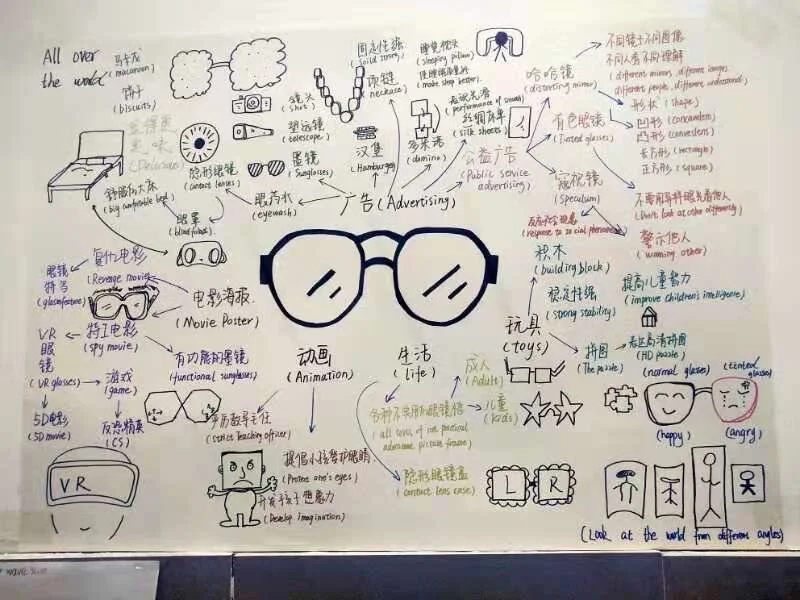 All over
the world
马卡龙
(macaroon)
饼干
(biscuits)
舒服的大床
(big comfortable bed)
隐形眼镜
(contact lenses)
眼罩
(blindfolded)
镜头
(shot)
望远镜
(telescope)
墨镜
(Sunglasses)
眼药水
(eyewash)
固定性强
项链
(neckace)
汉堡
(Hamburger)
广告 (Advertising)
(sleeping pillow)
(make sleep better)
多米诺
(domino)
(performance of smooth)
丝绸床单
(silk sheets)
公益广告
(Public service
advertising)
哈哈镜
(distorting mirror)
不同镜子不同图像
不同人有不同理解
(different mirrors, different images
different people, different understand)
形状 (shape)
凹形
凸形
长方形 (rectangle)
正方形 (square)
有色眼镜
(Tinted glasses)
(Don't look at other differently)
窥视镜
(speculum)
反应社会现象
(response to social phenomena)
警示他人
(warning other)
复仇电影
(Revenge movie)
眼镜
特写
(glass feature)
电影海报
(Movie Poster)
特工电影
(spy movie)
有功能的墨镜
(functional sunglasses)
VR
眼
镜
(VR glasses)
游戏
(game)
5D电影
(5D movie)
反恐精英
(CS)
VR
动画
(Animation)
严厉教导主任
(strict teaching officer)
提倡小孩爱护眼睛
(Protect one's eyes)
开发孩子想象力
(Develop imagination)
生活
(life)
成人
(Adult)
儿童
(kids)
隐形眼镜盒
(contact lens case)
L R
玩具
(toys)
积木
(building block)
稳定性强
(strong stability)
提高儿童智力
(improve children's intelligence)
拼图
(The puzzle)
高清拼图
(HD puzzle)
(normal glasses)
(tinted
glasses)
(happy)
(angry)
(Look at the world from different angles)